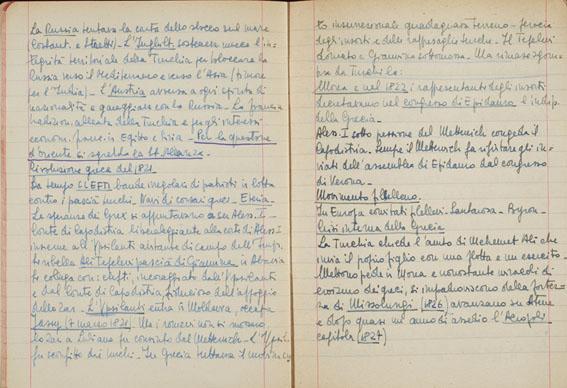 La Russia tentava la carta dello sbocco sul mare
(Costant. e Stretti) - L'Inghilt. sosteneva invece l'in-
tegrità territoriale della Turchia per bloccare la
Russia verso il Mediterraneo e verso l'Asia (timore
per l'India) - L'Austria avversa a ogni spirito di
nazionalità e guerreggiare con la Russia. La Francia
tradizion. alleata della Turchia e per gli interessi
econom. franc. in Egitto e Siria - Per la questione
d'oriente si sgretola la St. Alleanza.
Rivoluzione greca del 1821.
Da tempo CLEFTI bande irregolari di patrioti in lotta
contro i pascià turchi. Navi di corsari greci - Eteria -
Le speranze dei Greci si appuntavano su Aless. I -
Conte di Capodistria liberaleggiante alla corte di Aless. I
insieme all'Ypsilanti aiutante di campo dell'Imp.
Si ribella Alì Tepeleni pascià di Giannina in Albania
si collega con i clefti, incoraggiato dall'Ypsilanti
e dal Conte di Capodistria, fiduciosi dell'appoggio
dello zar - L'Ypsilanti entra in Moldavia, occupa
Jassy (7 marzo 1821). Ma i romeni non si mossero,
lo zar a Lubiana fu consigliato dal Metternich - L'Ypsil.
fu sconfitto dai turchi - In Grecia tuttavia il movimen
to insurrezionale guadagnava terreno - ferocia
degli insorti e delle rappresaglie turche. Il Tepeleni
domato e Giannina sottomessa. Ma rimase
da Turchi la
Morea e nel 1822 i rappresentanti degli insorti
dichiaravano nel congresso di Epidauro l'indip.
della Grecia -
Aless. I sotto pressione del Metternich congeda il
Capodistria - Sempre il Metternich fa rifiutare gli in-
viati dell'assemblea di Epidauro dal congresso
di Verona -
Movimento filelleno.
In Europa comitati filelleni - Santarosa - Byron -
Crisi interna della Grecia
La Turchia chiede l'aiuto di Mehemet Alì che
invia il proprio figlio con una flotta e un esercito -
Mettono piede in Morea e nonostante miracoli di
eroismo dei greci, si impadroniscono della fortez-
za di Missolungi (1826) avanzano su Atene
e dopo quasi un anno di assedio l'Acropoli
capitola (1827)